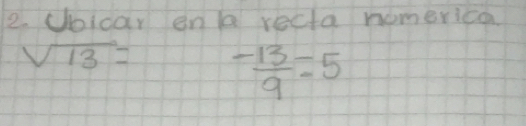 2. Ubicar en la recta númerica
√13 =    -13/9 = 5